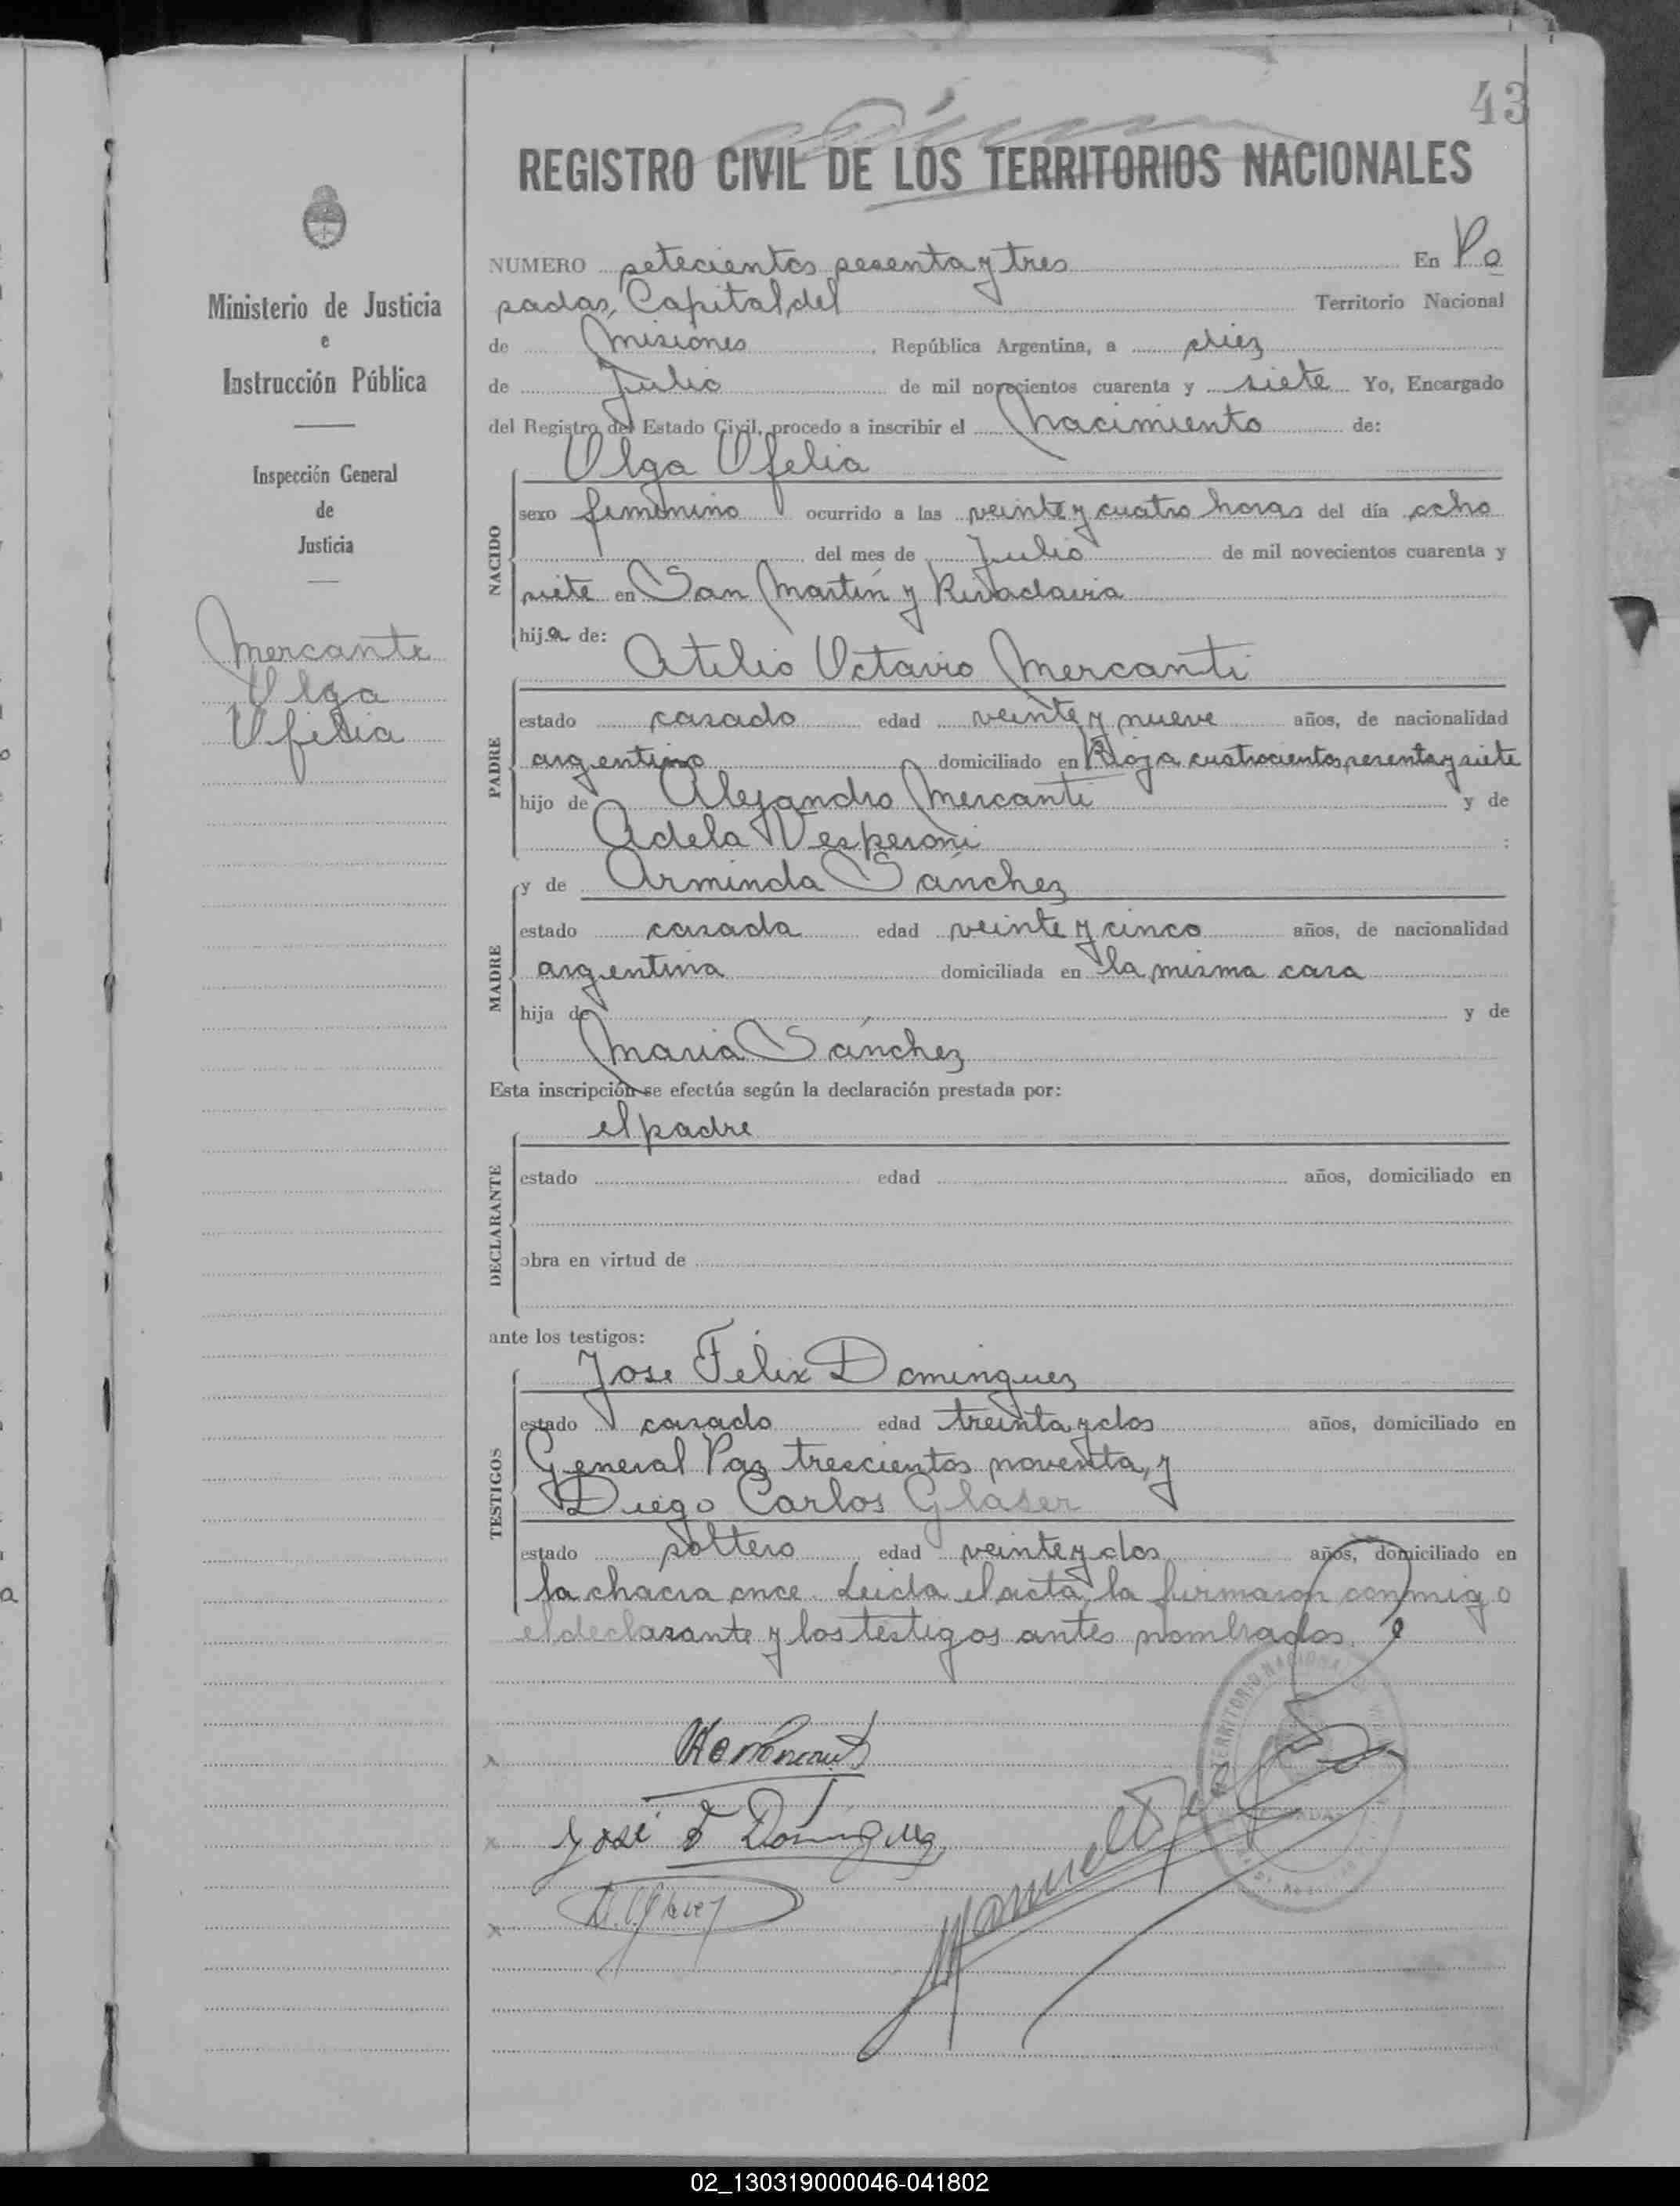 43
REGISTRO CIVIL DE LOS TERRITORIOS NACIONALES
Ministerio de Justicia
e
Instrucción Pública
Inspección General
de
Justicia
Mercante
Olga
Ofelia
NUMERO setecientos sesenta y tres En Po
sadas, Capital del Territorio Nacional
de Misiones, República Argentina, a diez
de Julio de mil novecientos cuarenta y siete Yo, Encargado
del Registro del Estado Civil, procedo a inscribir el Nacimiento de:
NACIDO
Olga Ofelia
sexo femenino ocurrido a las veinte y cuatro horas del día ocho
del mes de Julio de mil novecientos cuarenta y
siete en San Martín y Rivadavia
hija de:
PADRE
Atilio Octavio Mercanti
estado casado edad veinte y nueve años, de nacionalidad
argentino domiciliado en Rioja cuatrocientos sesenta y siete
hijo de Alejandro Mercanti y de
Adela Vesperoni :
MADRE
y de Arminda Sánchez
estado casada edad veinte y cinco años, de nacionalidad
argentina domiciliada en la misma casa
hija de y de
Maria Sánchez
Esta inscripción se efectúa según la declaración prestada por:
DECLARANTE
el padre
estado edad años, domiciliado en
obra en virtud de
ante los testigos:
TESTIGOS
Jose Félix Dominguez
estado casado edad treinta y dos años, domiciliado en
General Paz trescientos noventa, y
Diego Carlos Glaser
estado soltero edad veinte y dos años, domiciliado en
la chacra once. Leida el acta, la firmaron conmigo
el declarante y los testigos antes nombrados.
TERRITORIO NACIONAL
José F Dominguez
D. C. Glaser
02_130319000046-041802